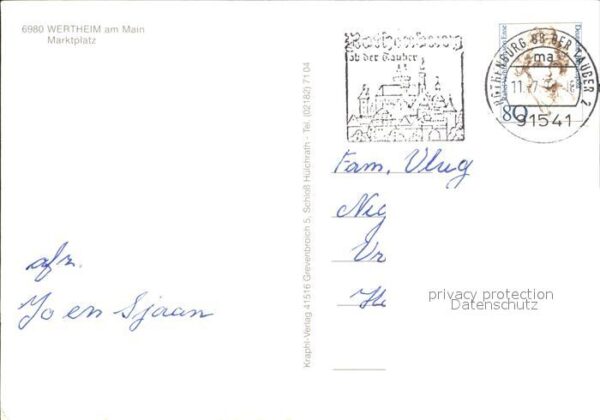 6980 WERTHEIM am Main
Marktplatz
Rothenburg
ob der Tauber
ROTHENBURG OB DER TAUBER 2
ma
11.-7.
91541
80
Kraphl-Verlag 41516 Grevenbroich 5, Schloß Hülchrath - Tel. (02182) 7104
Fam. Vlug
afz.
Jo en Sjaan
privacy protection
Datenschutz